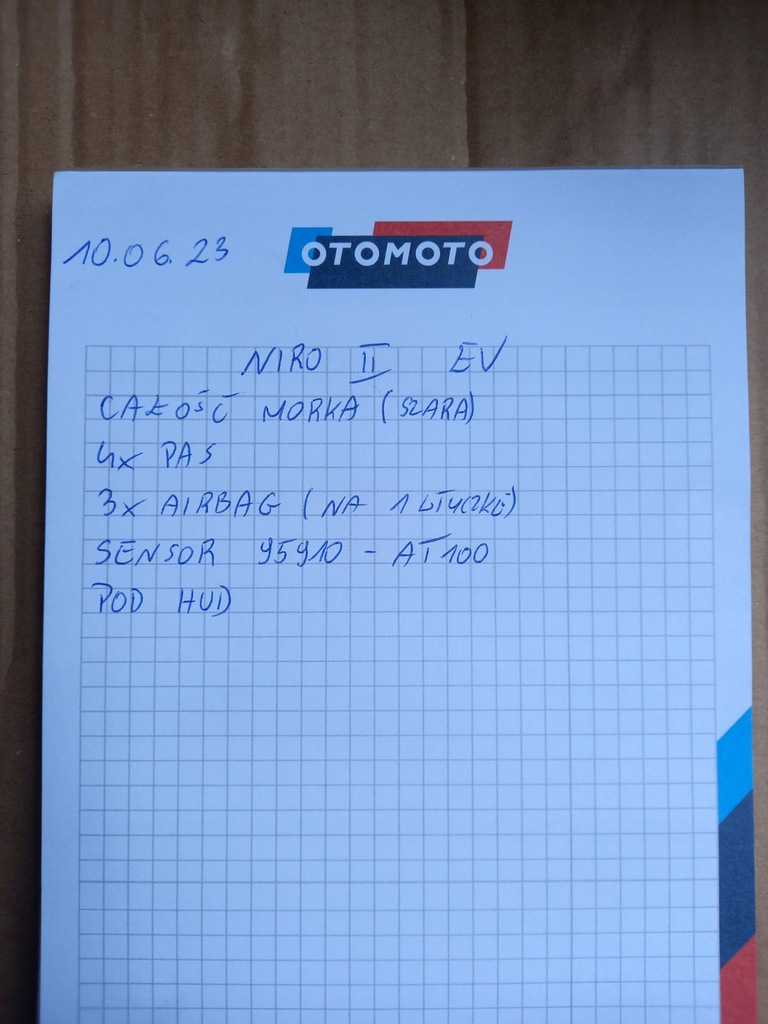 10.06.23
OTOMOTO
NIRO II EV
CAŁOŚĆ MOKRA (SZARA)
4x PAS
3x AIRBAG (NA 1 WTYCZKĘ)
SENSOR 95910 - AT100
POD HUD